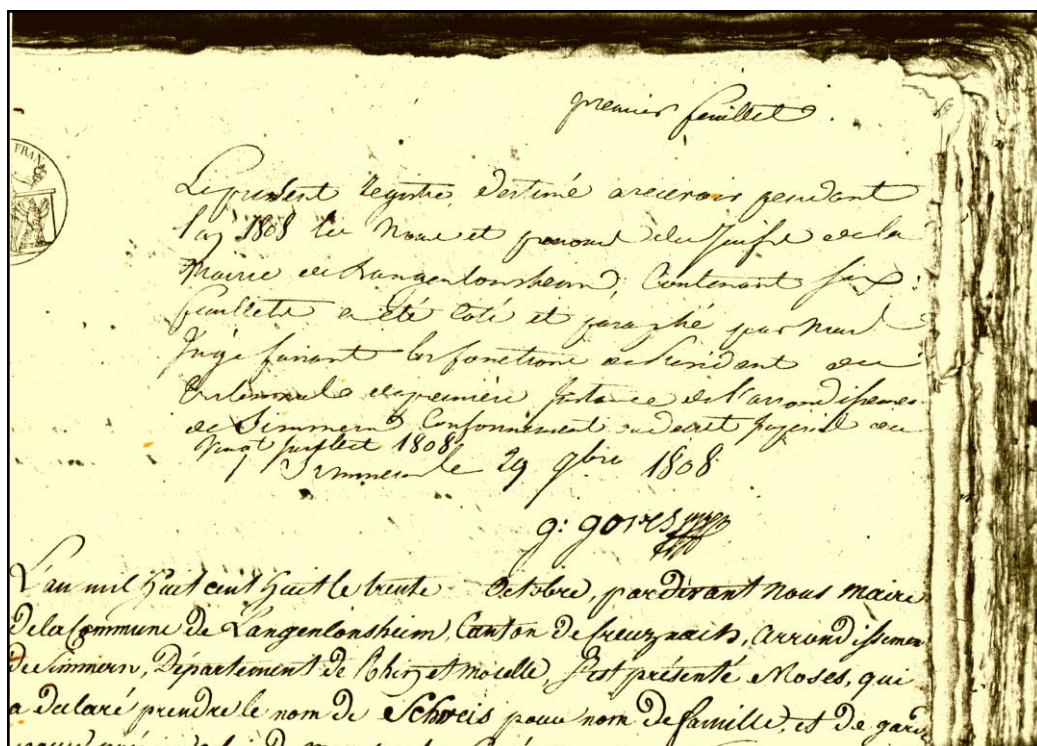 premier feuillet.
FRAN
Le présent Registre destiné a recevoir pendant
l'an 1808 les Noms et prenoms des Juifs de la
Mairie de Langenlonsheim, Contenant six
feuillets a été coté et paraphé par nous
Juge faisant les fonctions de Président du
tribunal de première Instance de l'arrondissement
de Simmern Conformément au décret Impérial du
vingt juillet 1808
Simmern le 29 9bre 1808
g: gores
L'an mil huit cent huit le trente Octobre, par divant Nous Maire
de la Commune de Langenlonsheim, Canton de Creuznach, arrondissemen
de Simmern, Département de Rhin et moselle, s'est présenté Moses, qui
a declaré prendre le nom de Schweis pour nom de famille, et de gard
pour prénom